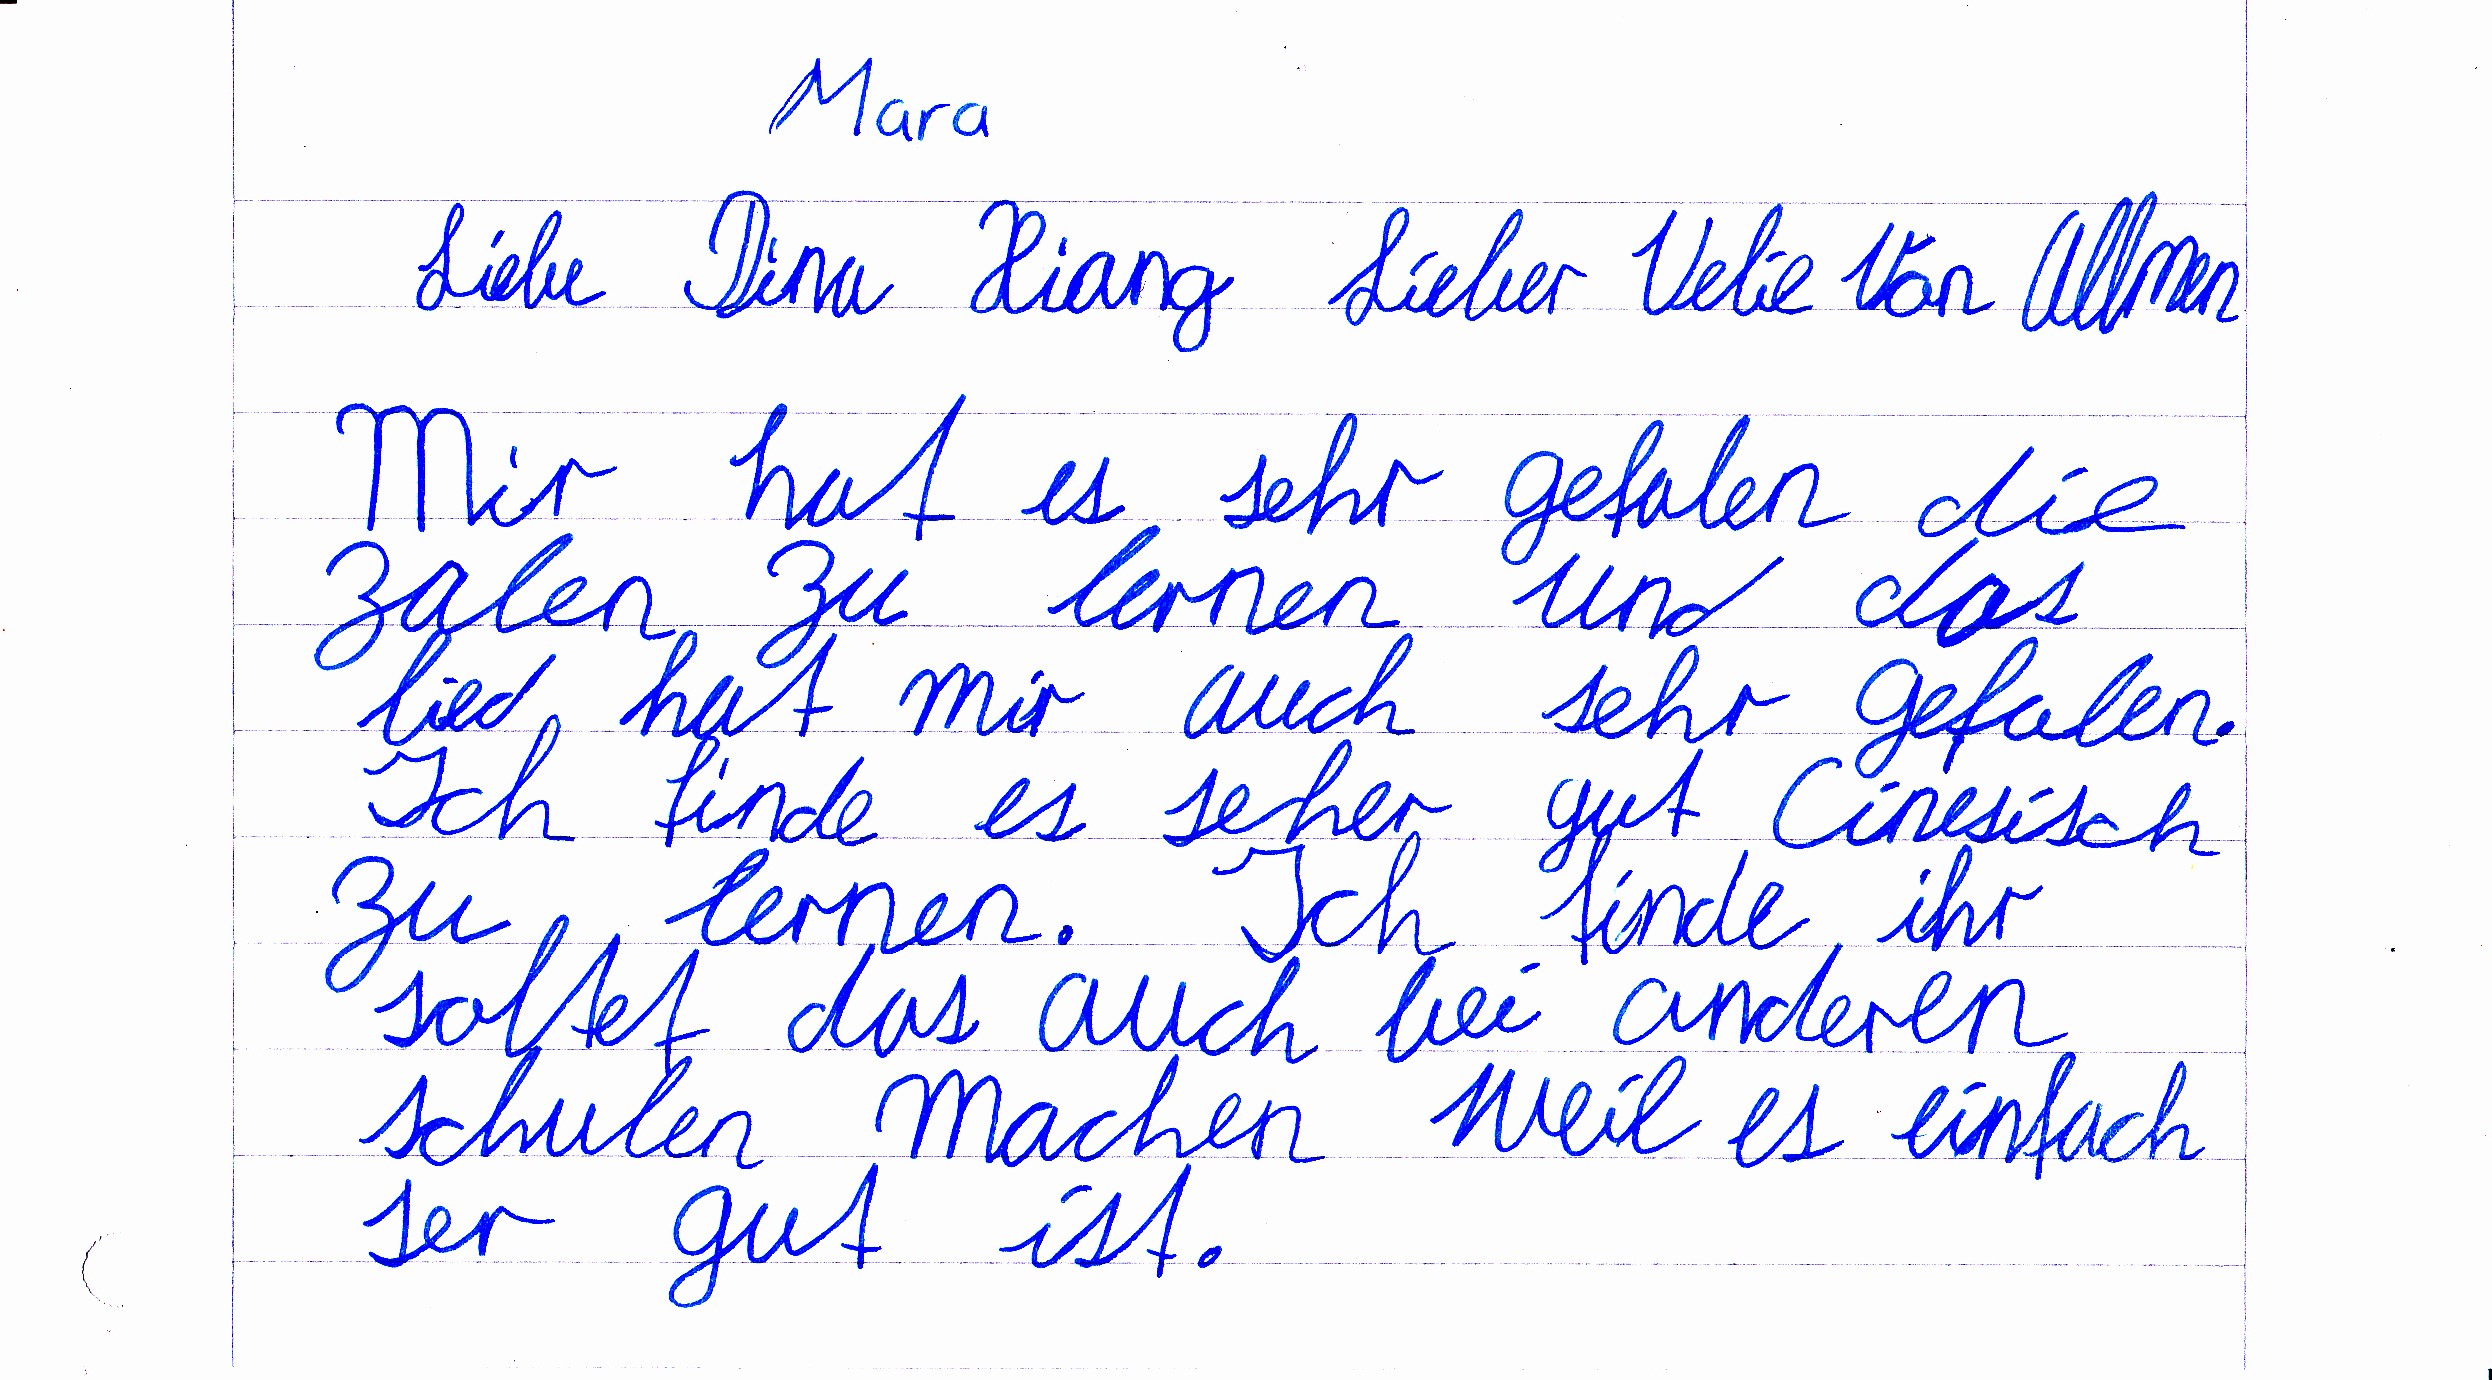 Mara
Liebe Dina Xiang Lieber Velie Von Allmen
Mir hat es sehr gefalen die
Zalen zu lernen und das
lied hat mir auch sehr gefalen.
Ich finde es seher gut Cinesisch
zu lernen. Ich finde ihr
soltet das auch bei anderen
schulen Machen weil es einfach
ser gut ist.